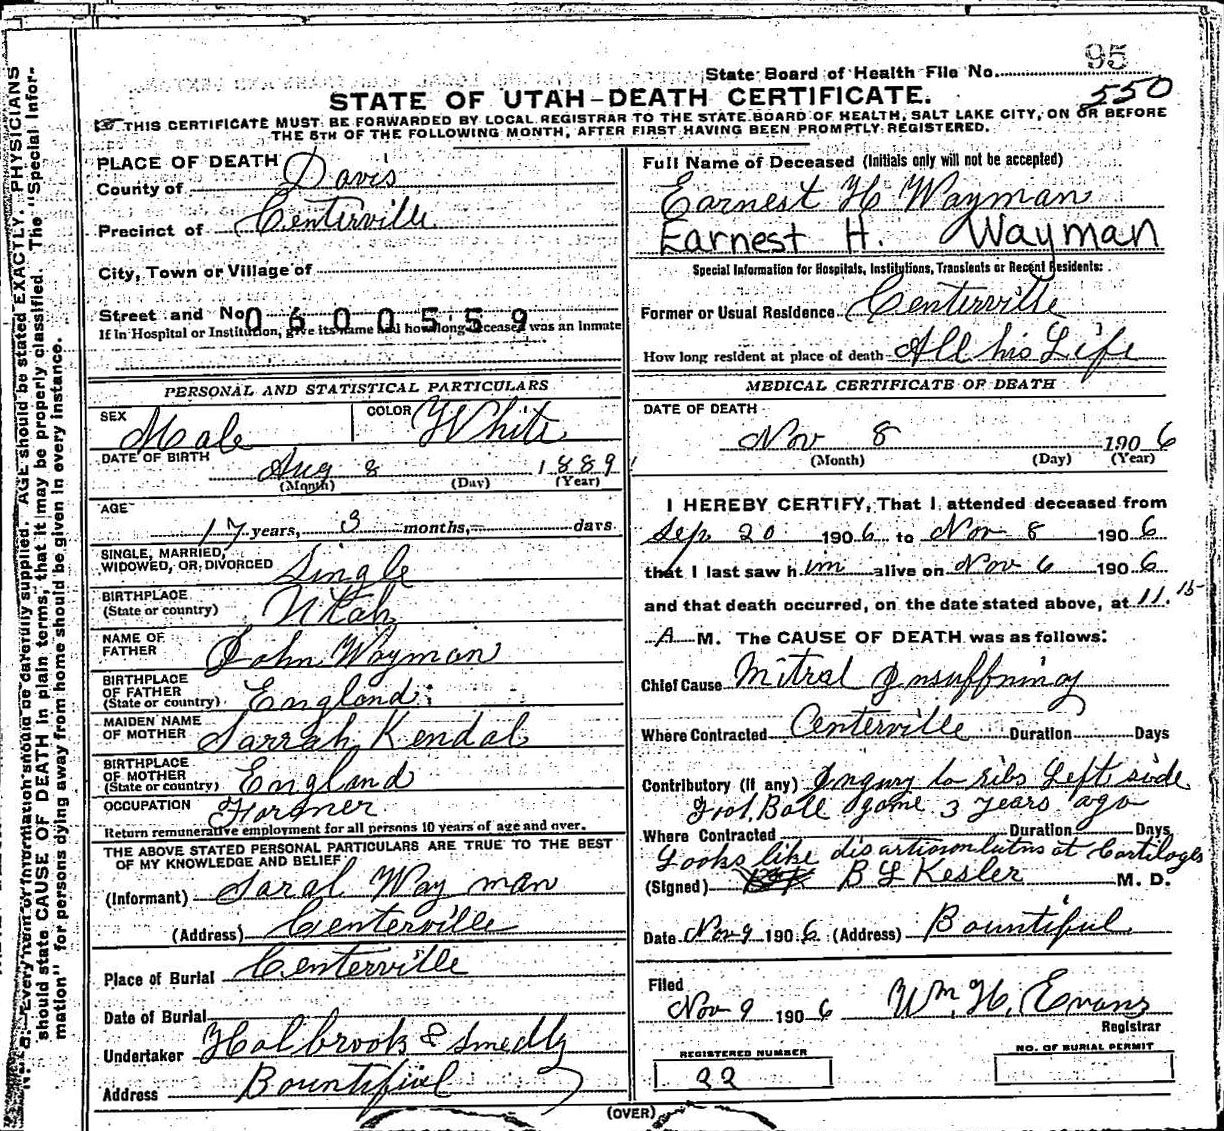 95
State Board of Health File No.
550
STATE OF UTAH-DEATH CERTIFICATE.
THIS CERTIFICATE MUST BE FORWARDED BY LOCAL REGISTRAR TO THE STATE BOARD OF HEALTH, SALT LAKE CITY, ON OR BEFORE
THE 5TH OF THE FOLLOWING MONTH, AFTER FIRST HAVING BEEN PROMPTLY REGISTERED.
PLACE OF DEATH
County of Davis
Precinct of Centerville
City, Town or Village of
Street and No. 0600559
If in Hospital or Institution, give its name and how long deceased was an Inmate
PERSONAL AND STATISTICAL PARTICULARS
SEX Male COLOR White
DATE OF BIRTH Aug 8 1889
(Month) (Day) (Year)
AGE
17 years, 3 months, days
SINGLE, MARRIED,
WIDOWED, OR DIVORCED Single
BIRTHPLACE
(State or country) Utah
NAME OF
FATHER John Wayman
BIRTHPLACE
OF FATHER
(State or country) England
MAIDEN NAME
OF MOTHER Sarrah Kendal
BIRTHPLACE
OF MOTHER
(State or country) England
OCCUPATION Farmer
Return remunerative employment for all persons 10 years of age and over.
THE ABOVE STATED PERSONAL PARTICULARS ARE TRUE TO THE BEST
OF MY KNOWLEDGE AND BELIEF
(Informant) Saral Wayman
(Address) Centerville
Place of Burial Centerville
Date of Burial
Undertaker Holbrook & Smedly
Address Bountiful
Full Name of Deceased (Initials only will not be accepted)
Earnest H Wayman
Earnest H. Wayman
Special Information for Hospitals, Institutions, Transients or Recent Residents:
Former or Usual Residence Centerville
How long resident at place of death All his Life
MEDICAL CERTIFICATE OF DEATH
DATE OF DEATH
Nov 8 1906
(Month) (Day) (Year)
I HEREBY CERTIFY, That I attended deceased from
Sep 20 1906 to Nov 8 1906
that I last saw him alive on Nov 6 1906
and that death occurred, on the date stated above, at 11.15
A M. The CAUSE OF DEATH was as follows:
Chief Cause Mitral Insuffniny
Where Contracted Centerville Duration Days
Contributory (if any) Ingury to ribs Left side
Foot Ball game 3 years ago
Where Contracted Duration Days
Looks like at Cartilages
(Signed) B L Kesler M. D.
Date Nov 9 1906 (Address) Bountiful
Filed
Nov 9 1906 Wm. H. Evans
Registrar
REGISTERED NUMBER
22
NO. OF BURIAL PERMIT
(OVER)
Every item of information should be carefully supplied. AGE should be stated EXACTLY. PHYSICIANS
should state CAUSE OF DEATH in plain terms, that it may be properly classified. The "Special Infor-
mation" for persons dying away from home should be given in every instance.